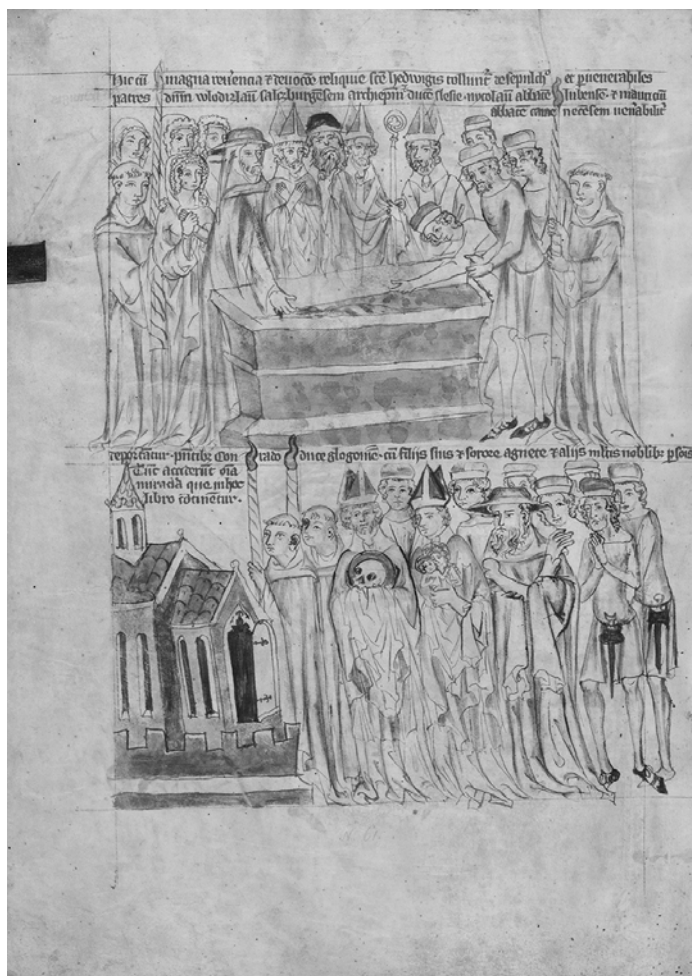 Hic cū magna reuēencia ⁊ deuocōe reliquie scē hedwigis tollunt᷑ de sepulch° et p uenerabiles
patres dn̄m wlodizlaū salczburgēsem archiepm̄ ducē slesie nycolaū abbatē lubensē ⁊ mauriciū
abbatē cāme necēsem uen̄abilit᷑
deportatur pn̄tibꝫ Con rado duce glogouiē cū filijs suis ⁊ sorore agnete ⁊ alijs m̄ltis nobilibꝫ p̄sōis
Tūc acciderūt oīa
miranda que in hoc
libro cōtinentur.